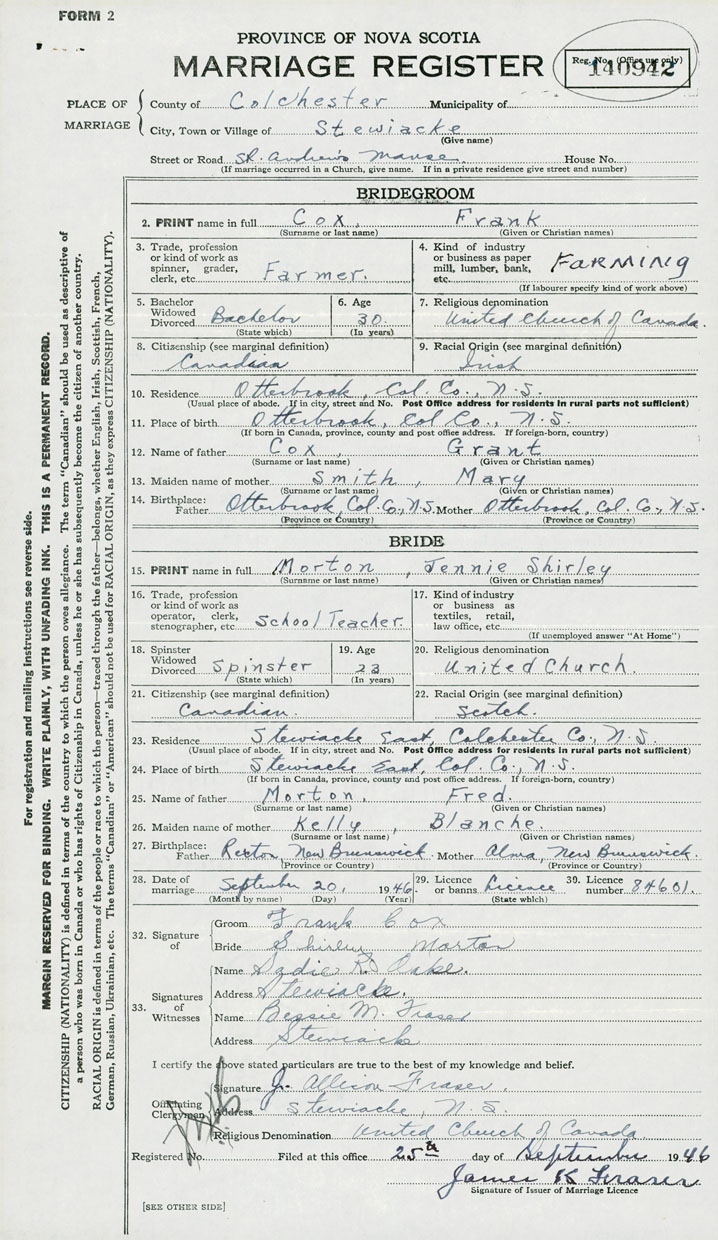 FORM 2
PROVINCE OF NOVA SCOTIA
MARRIAGE REGISTER
Reg. No. (Office use only)
140942
PLACE OF MARRIAGE
County of Colchester Municipality of
City, Town or Village of Stewiacke
(Give name)
Street or Road St. Andrew's Manse House No.
(If marriage occurred in a Church, give name. If in a private residence give street and number)
BRIDEGROOM
2. PRINT name in full Cox, Frank
(Surname or last name) (Given or Christian names)
3. Trade, profession or kind of work as spinner, grader, clerk, etc. Farmer.
4. Kind of industry or business as paper mill, lumber, bank, etc. FARMING
(If labourer specify kind of work above)
5. Bachelor Widowed Divorced Bachelor
(State which)
6. Age 30
(In years)
7. Religious denomination
United Church of Canada.
8. Citizenship (see marginal definition)
Canadian
9. Racial Origin (see marginal definition)
Irish
10. Residence Otterbrook, Col. Co., N.S.
(Usual place of abode. If in city, street and No. Post Office address for residents in rural parts not sufficient)
11. Place of birth Otterbrook, Col Co., N.S.
(If born in Canada, province, county and post office address. If foreign-born, country)
12. Name of father Cox, Grant
(Surname or last name) (Given or Christian names)
13. Maiden name of mother Smith, Mary
(Surname or last name) (Given or Christian names)
14. Birthplace: Father Otterbrook, Col. Co., N.S. Mother Otterbrook, Col. Co., N.S.
(Province or Country) (Province or Country)
BRIDE
15. PRINT name in full Morton, Jennie Shirley
(Surname or last name) (Given or Christian names)
16. Trade, profession or kind of work as operator, clerk, stenographer, etc School Teacher
17. Kind of industry or business as textiles, retail, law office, etc.
(If unemployed answer "At Home")
18. Spinster Widowed Divorced Spinster
(State which)
19. Age 23
(In years)
20. Religious denomination
United Church.
21. Citizenship (see marginal definition)
Canadian.
22. Racial Origin (see marginal definition)
Scotch.
23. Residence Stewiacke East, Colchester Co., N.S.
(Usual place of abode. If in city, street and No. Post Office address for residents in rural parts not sufficient)
24. Place of birth Stewiacke East, Col. Co., N.S.
(If born in Canada, province, county and post office address. If foreign-born, country)
25. Name of father Morton, Fred.
(Surname or last name) (Given or Christian names)
26. Maiden name of mother Kelly, Blanche.
(Surname or last name) (Given or Christian names)
27. Birthplace: Father Rexton, New Brunswick. Mother Alma, New Brunswick.
(Province or Country) (Province or Country)
28. Date of marriage September 20, 1946.
(Month by name) (Day) (Year)
29. Licence or banns Licence
(State which)
30. Licence number 84601.
32. Signature of
Groom Frank Cox
Bride Shirley Morton
33. Signatures of Witnesses
Name Sadie R. Oake.
Address Stewiacke.
Name Bessie M. Fraser
Address Stewiacke
I certify the above stated particulars are true to the best of my knowledge and belief.
Officiating Clergyman
Signature J. Allison Fraser.
Address Stewiacke, N.S.
Religious Denomination United Church of Canada
Registered No. Filed at this office 25th day of September 1946
James K Fraser
Signature of Issuer of Marriage Licence
[SEE OTHER SIDE]
For registration and mailing instructions see reverse side.
MARGIN RESERVED FOR BINDING. WRITE PLAINLY, WITH UNFADING INK. THIS IS A PERMANENT RECORD.
CITIZENSHIP (NATIONALITY) is defined in terms of the country to which the person owes allegiance. The term "Canadian" should be used as descriptive of
a person who was born in Canada or who has rights of Citizenship in Canada, unless he or she has subsequently become the citizen of another country.
RACIAL ORIGIN is defined in terms of the people or race to which the person—traced through the father—belongs, whether English, Irish, Scottish, French,
German, Russian, Ukrainian, etc. The terms "Canadian" or "American" should not be used for RACIAL ORIGIN, as they express CITIZENSHIP (NATIONALITY).